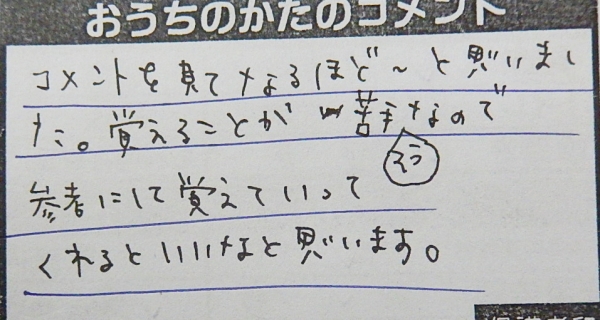 おうちのかたのコメント
コメントを見てなるほど～と思いまし
た。覚えることが苦手なので
そう
参考にして覚えていって
くれるといいなと思います。